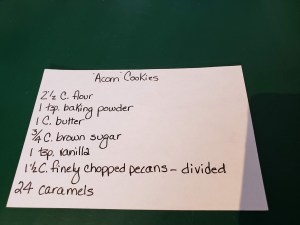 "Acorn" Cookies
2 1/2 C. flour
1 tsp. baking powder
1 C. butter
3/4 C. brown sugar
1 tsp. vanilla
1 1/2 C. finely chopped pecans - divided
24 caramels